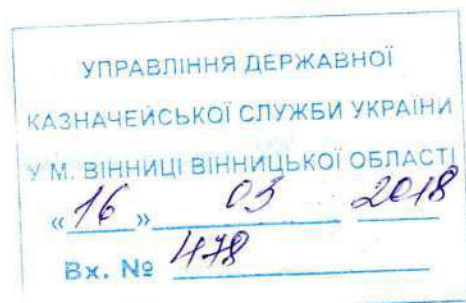 УПРАВЛІННЯ ДЕРЖАВНОЇ
КАЗНАЧЕЙСЬКОЇ СЛУЖБИ УКРАЇНИ
У М. ВІННИЦІ ВІННИЦЬКОЇ ОБЛАСТІ
«16» 03 2018
Вх. № 478